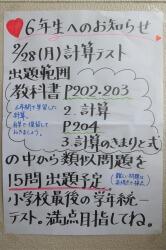 6年生へのお知らせ
2/28(月)計算テスト
出題範囲
教科書 P202.203
2.計算
P204
3.計算のきまりと式
の中から類似問題を
15問出題予定
小学校最後の学年統一
テスト。満点目指してね。